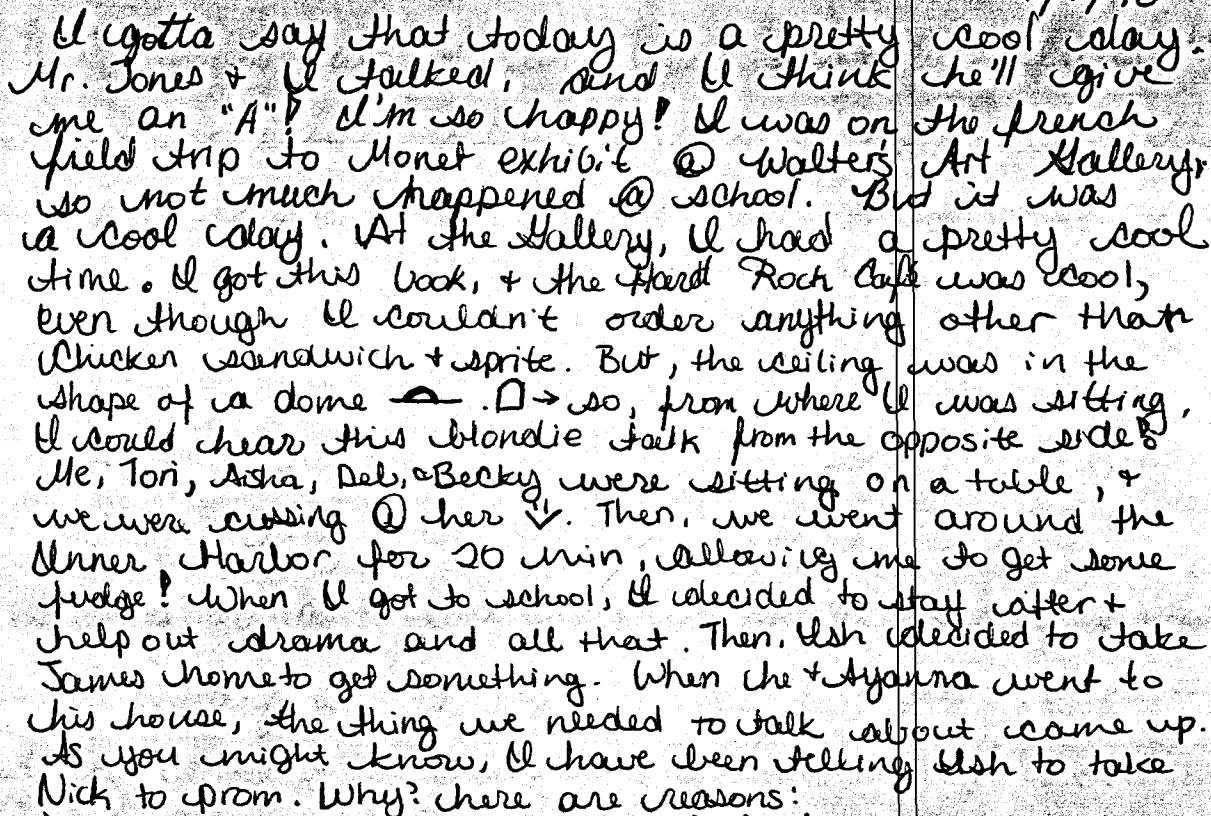 I gotta say that today is a pretty cool day.
Mr. Jones + I talked, and I think he'll give
me an "A"! I'm so happy! I was on the french
field trip to Monet exhibit @ Walter's Art Gallery,
so not much happened @ school. But it was
a cool day. At the Gallery, I had a pretty cool
time. I got this book, + the Hard Rock Café was cool,
even though I couldn't order anything other than
Chicken sandwich + sprite. But, the ceiling was in the
shape of a dome . → so, from where I was sitting,
I could hear this blondie talk from the opposite side!
Me, Tori, Aisha, Deb, & Becky were sitting on a table, +
we were cussing @ her ↓. Then, we went around the
Inner Harbor for 20 min, allowing me to get some
fudge! When I got to school, I decided to stay after +
help out drama and all that. Then, Ush decided to take
James home to get something. When he + Ayanna went to
his house, the thing we needed to talk about came up.
As you might know, I have been telling Ush to take
Nick to prom. Why? here are reasons: